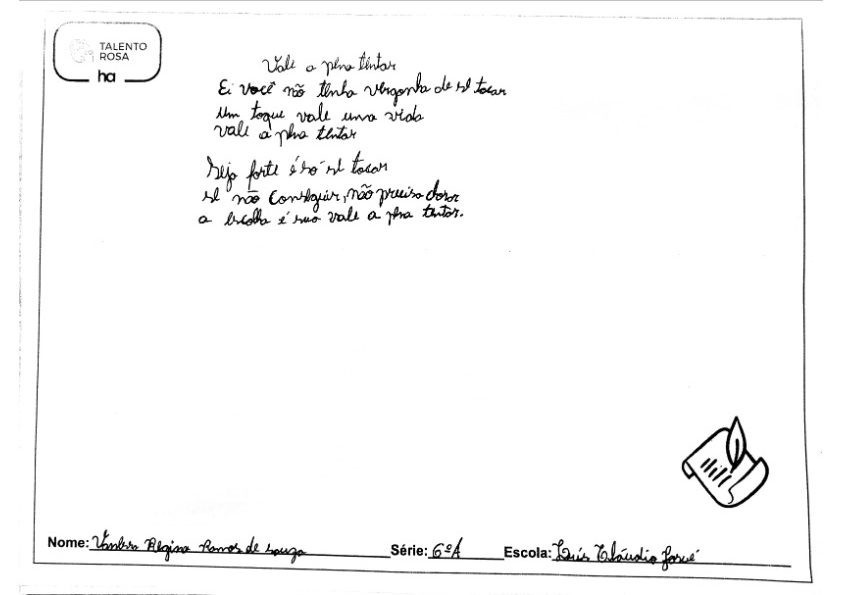 TALENTO
ROSA
ha
Vale a pena tentar
Ei você não tenha vergonha de se tocar
Um toque vale uma vida
vale a pena tentar
Seja forte é só se tocar
se não conseguir, não precisa chorar
a escolha é sua vale a pena tentar.
Nome: Vanessa Regina Ramos de Souza Série: 6ºA Escola: Luís Cláudio Josué